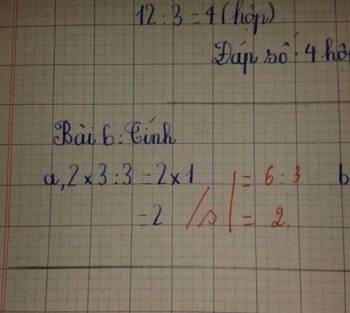 12 : 3 = 4 (hộp)
Đáp số: 4 hộ
Bài 6: Tính
a, 2 × 3 : 3 = 2 × 1 = 6 : 3 b
= 2 /s = 2.